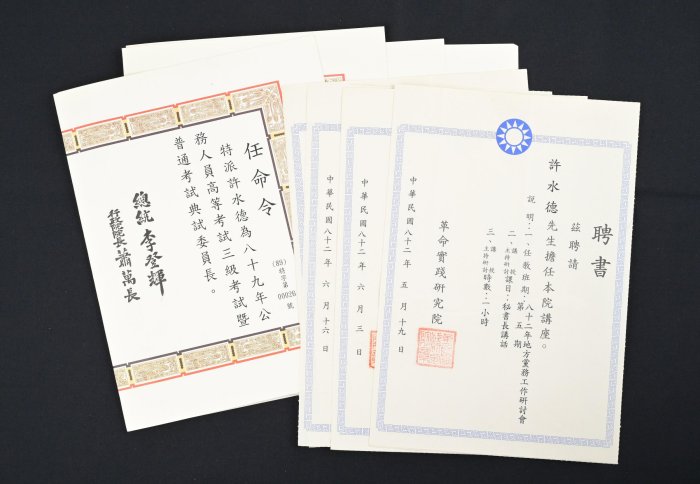 聘書
茲聘請
許水德先生擔任本院講座。
說明：一、任教班期：八十二年地方黨務工作研討會
第五期
二、講授主持研討課目：秘書長講話
三、講授主持研討時數：一小時
革命實踐研究院
中華民國八十二年五月十九日
中華民國八十二年六月三日
中華民國八十二年六月十六日
任命令
(89)特字第00026號
特派許水德為八十九年公
務人員高等考試三級考試暨
普通考試典試委員長。
總統李登輝
行政院長蕭萬長